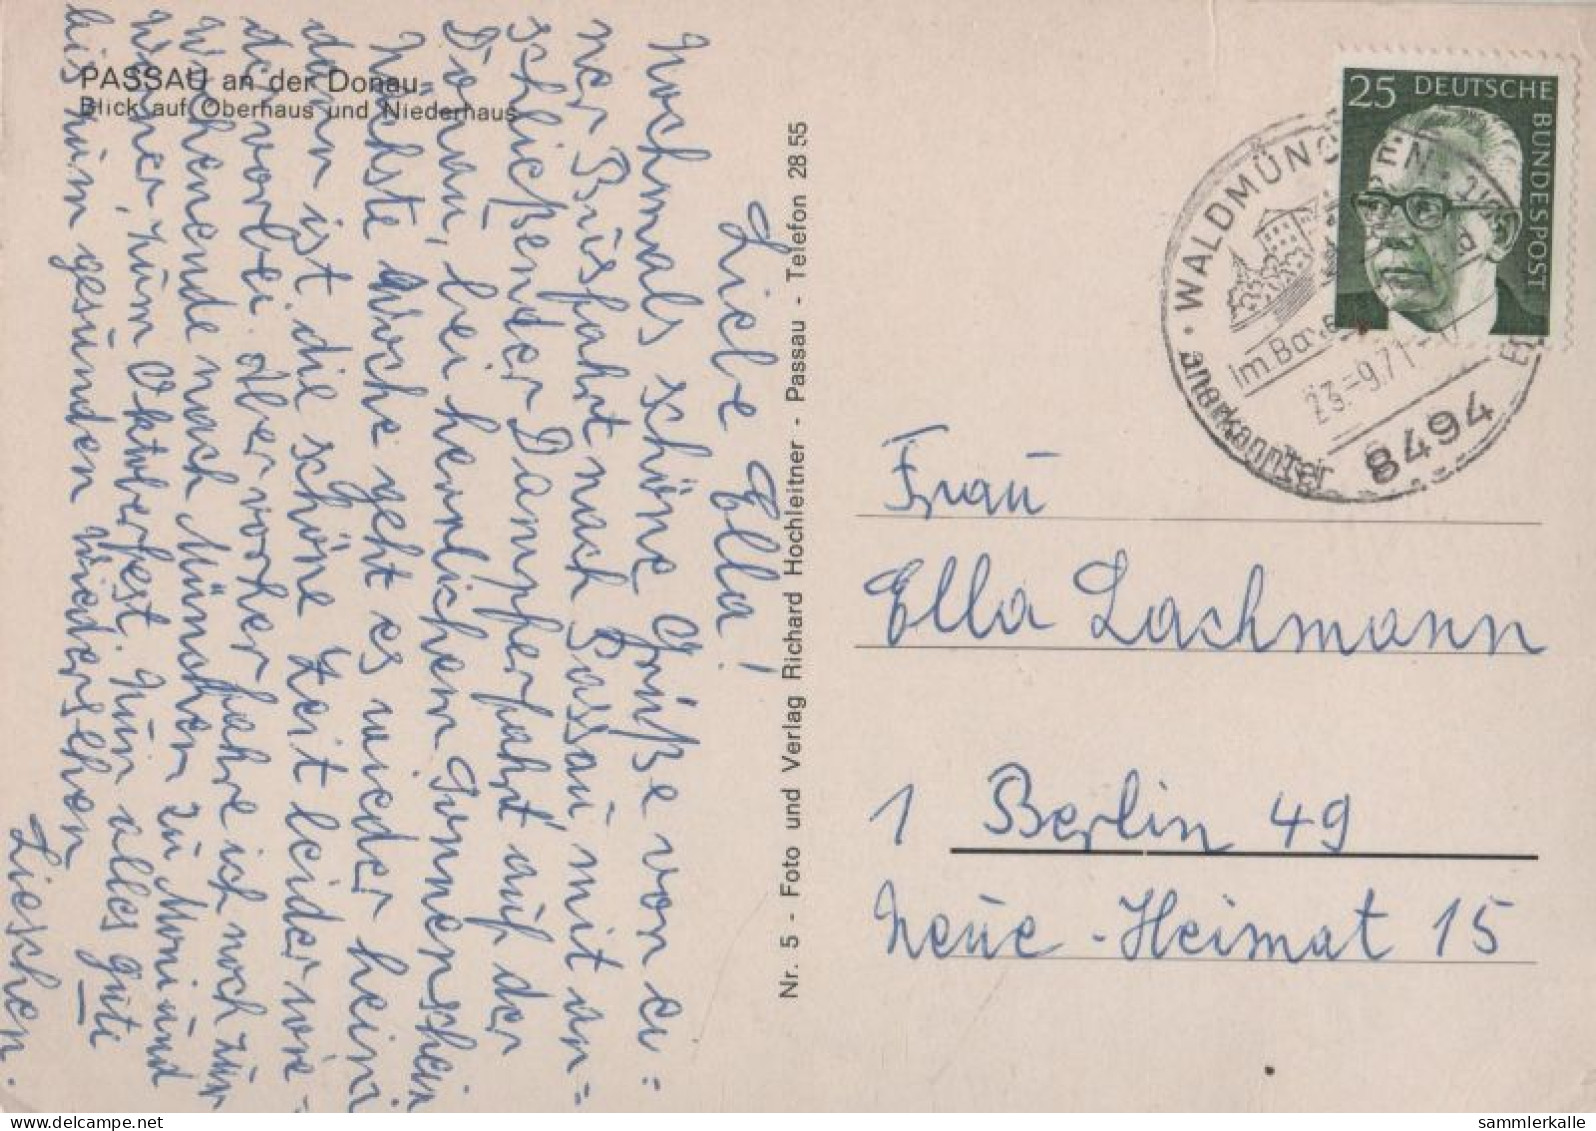 PASSAU an der Donau
Blick auf Oberhaus und Niederhaus
Liebe Ella!
Nochmals schöne Grüße von ei=
ner Busfahrt nach Passau, mit an=
schließender Dampferfahrt auf der
Donau, bei herrlichem Sonnenschein
Nächste Woche geht es wieder heim
dann ist die schöne Zeit leider wie=
der vorbei. Aber vorher fahre ich noch zum
Wochenende nach München zu Moni und
Werner, zum Oktoberfest. Nun alles gute
bis zum gesunden Wiedersehen
Lieschen.
Nr. 5 - Foto und Verlag Richard Hochleitner - Passau - Telefon 28 55
25 DEUTSCHE BUNDESPOST
WALDMÜNCHEN
anerkannter
23.-9.71
8494
Frau
Ella Lachmann
1 Berlin 49
Neue-Heimat 15
sammlerkalle